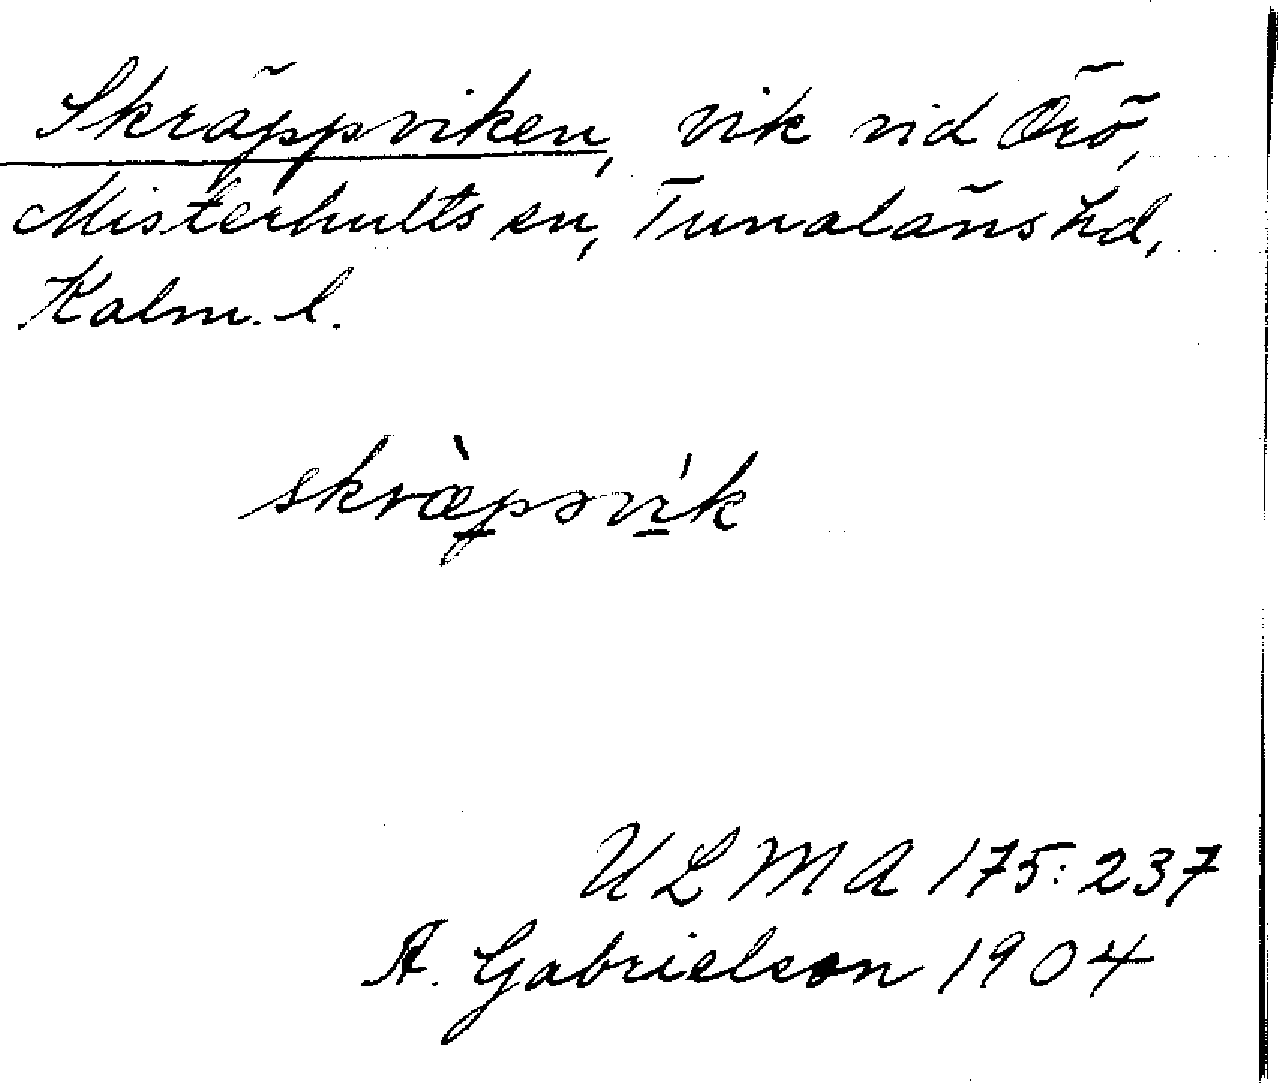 Skräppviken, vik vid Örö,
Misterhults sn, Tunaläns hd,
Kalm. l.
skræ̀pəvík
ULMA 175:237
A. Gabrielson 1904